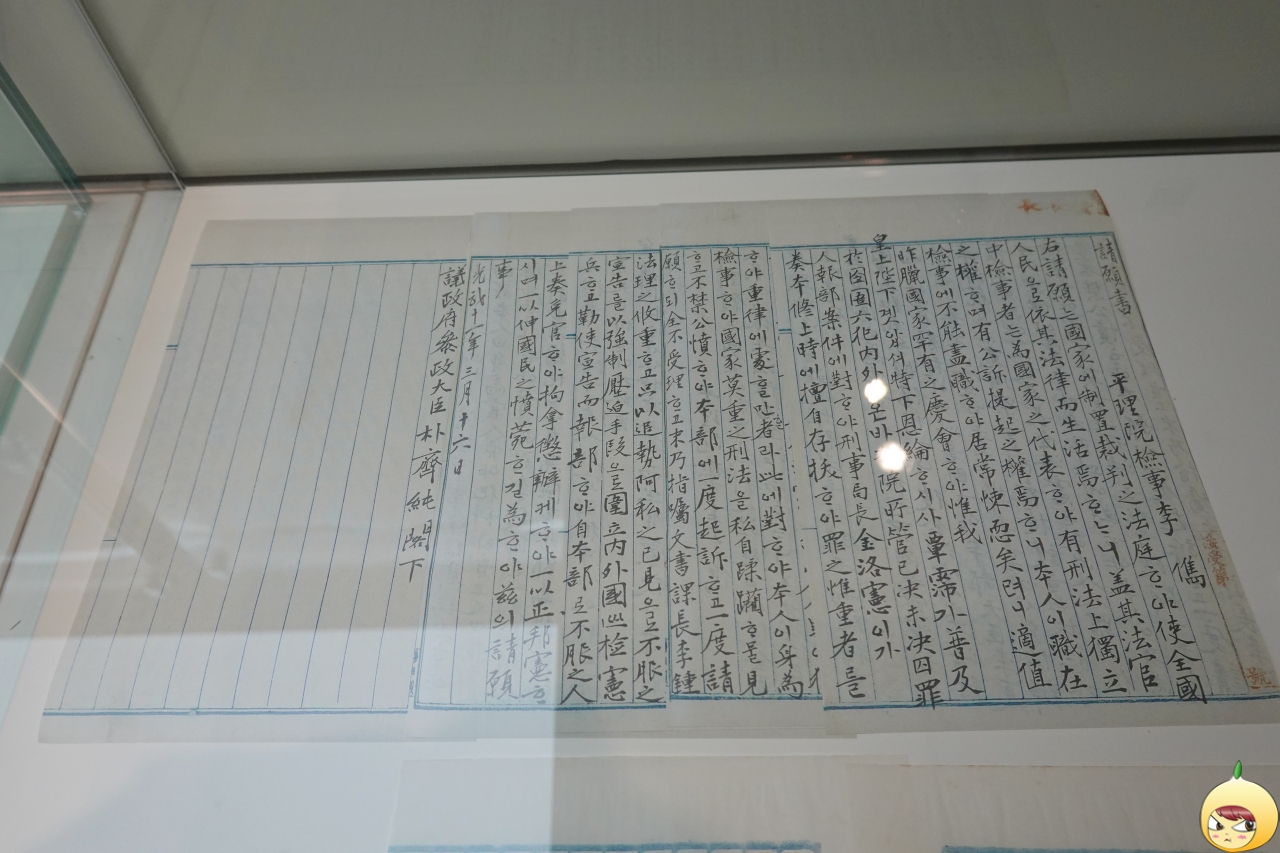 請願書
平理院檢事李 儁
右請願은國家에制置裁判之法庭ᄒᆞ야使全國
人民으로依其法律而生活焉ᄒᆞᄂᆞ니盖其法官
中檢事者ᄂᆞᆫ為國家之代表ᄒᆞ야有刑法上獨立
之權ᄒᆞ며有公訴提起之權焉ᄒᆞ니本人이職在
檢事에不能盡職ᄒᆞ야居常悚恧矣러니適值
昨臘國家罕有之慶會ᄒᆞ야惟我
皇上陛下게ᄋᆞᆸ셔特下恩綸ᄒᆞ시사覃霈가普及
於囹圄六犯內外 온바 院所管已決未決囚罪
人報部案件에對ᄒᆞ야刑事局長金洛憲이가
奏本修上時에擅自存拔ᄒᆞ야罪之惟重者를
ᄒᆞ야重律에處ᄒᆞᆯ만ᄒᆞᆫ者라此에對ᄒᆞ야本人이身為
檢事ᄒᆞ야國家莫重之刑法을私自蹂躪ᄒᆞ믈見
ᄒᆞ고不禁公憤ᄒᆞ야本部에一度起訴ᄒᆞ고一度請
願ᄒᆞ되全不受理ᄒᆞ고末乃指囑文書課長李鍾
法理之攸重ᄒᆞ고只以追勢阿私之已見으로不服之
宣告를以強制壓迫手段으로圍立內外國巡检憲
兵ᄒᆞ고勒使宣告而報部ᄒᆞ야自本部로不服之人
上奏免官ᄒᆞ야拘拿懲辦케ᄒᆞ야一以正邦憲ᄒᆞ
시며一以伸國民之憤菀ᄒᆞ길為ᄒᆞ야茲이請願
事
光武十一年三月十六日
議政府參政大臣朴齊純閤下